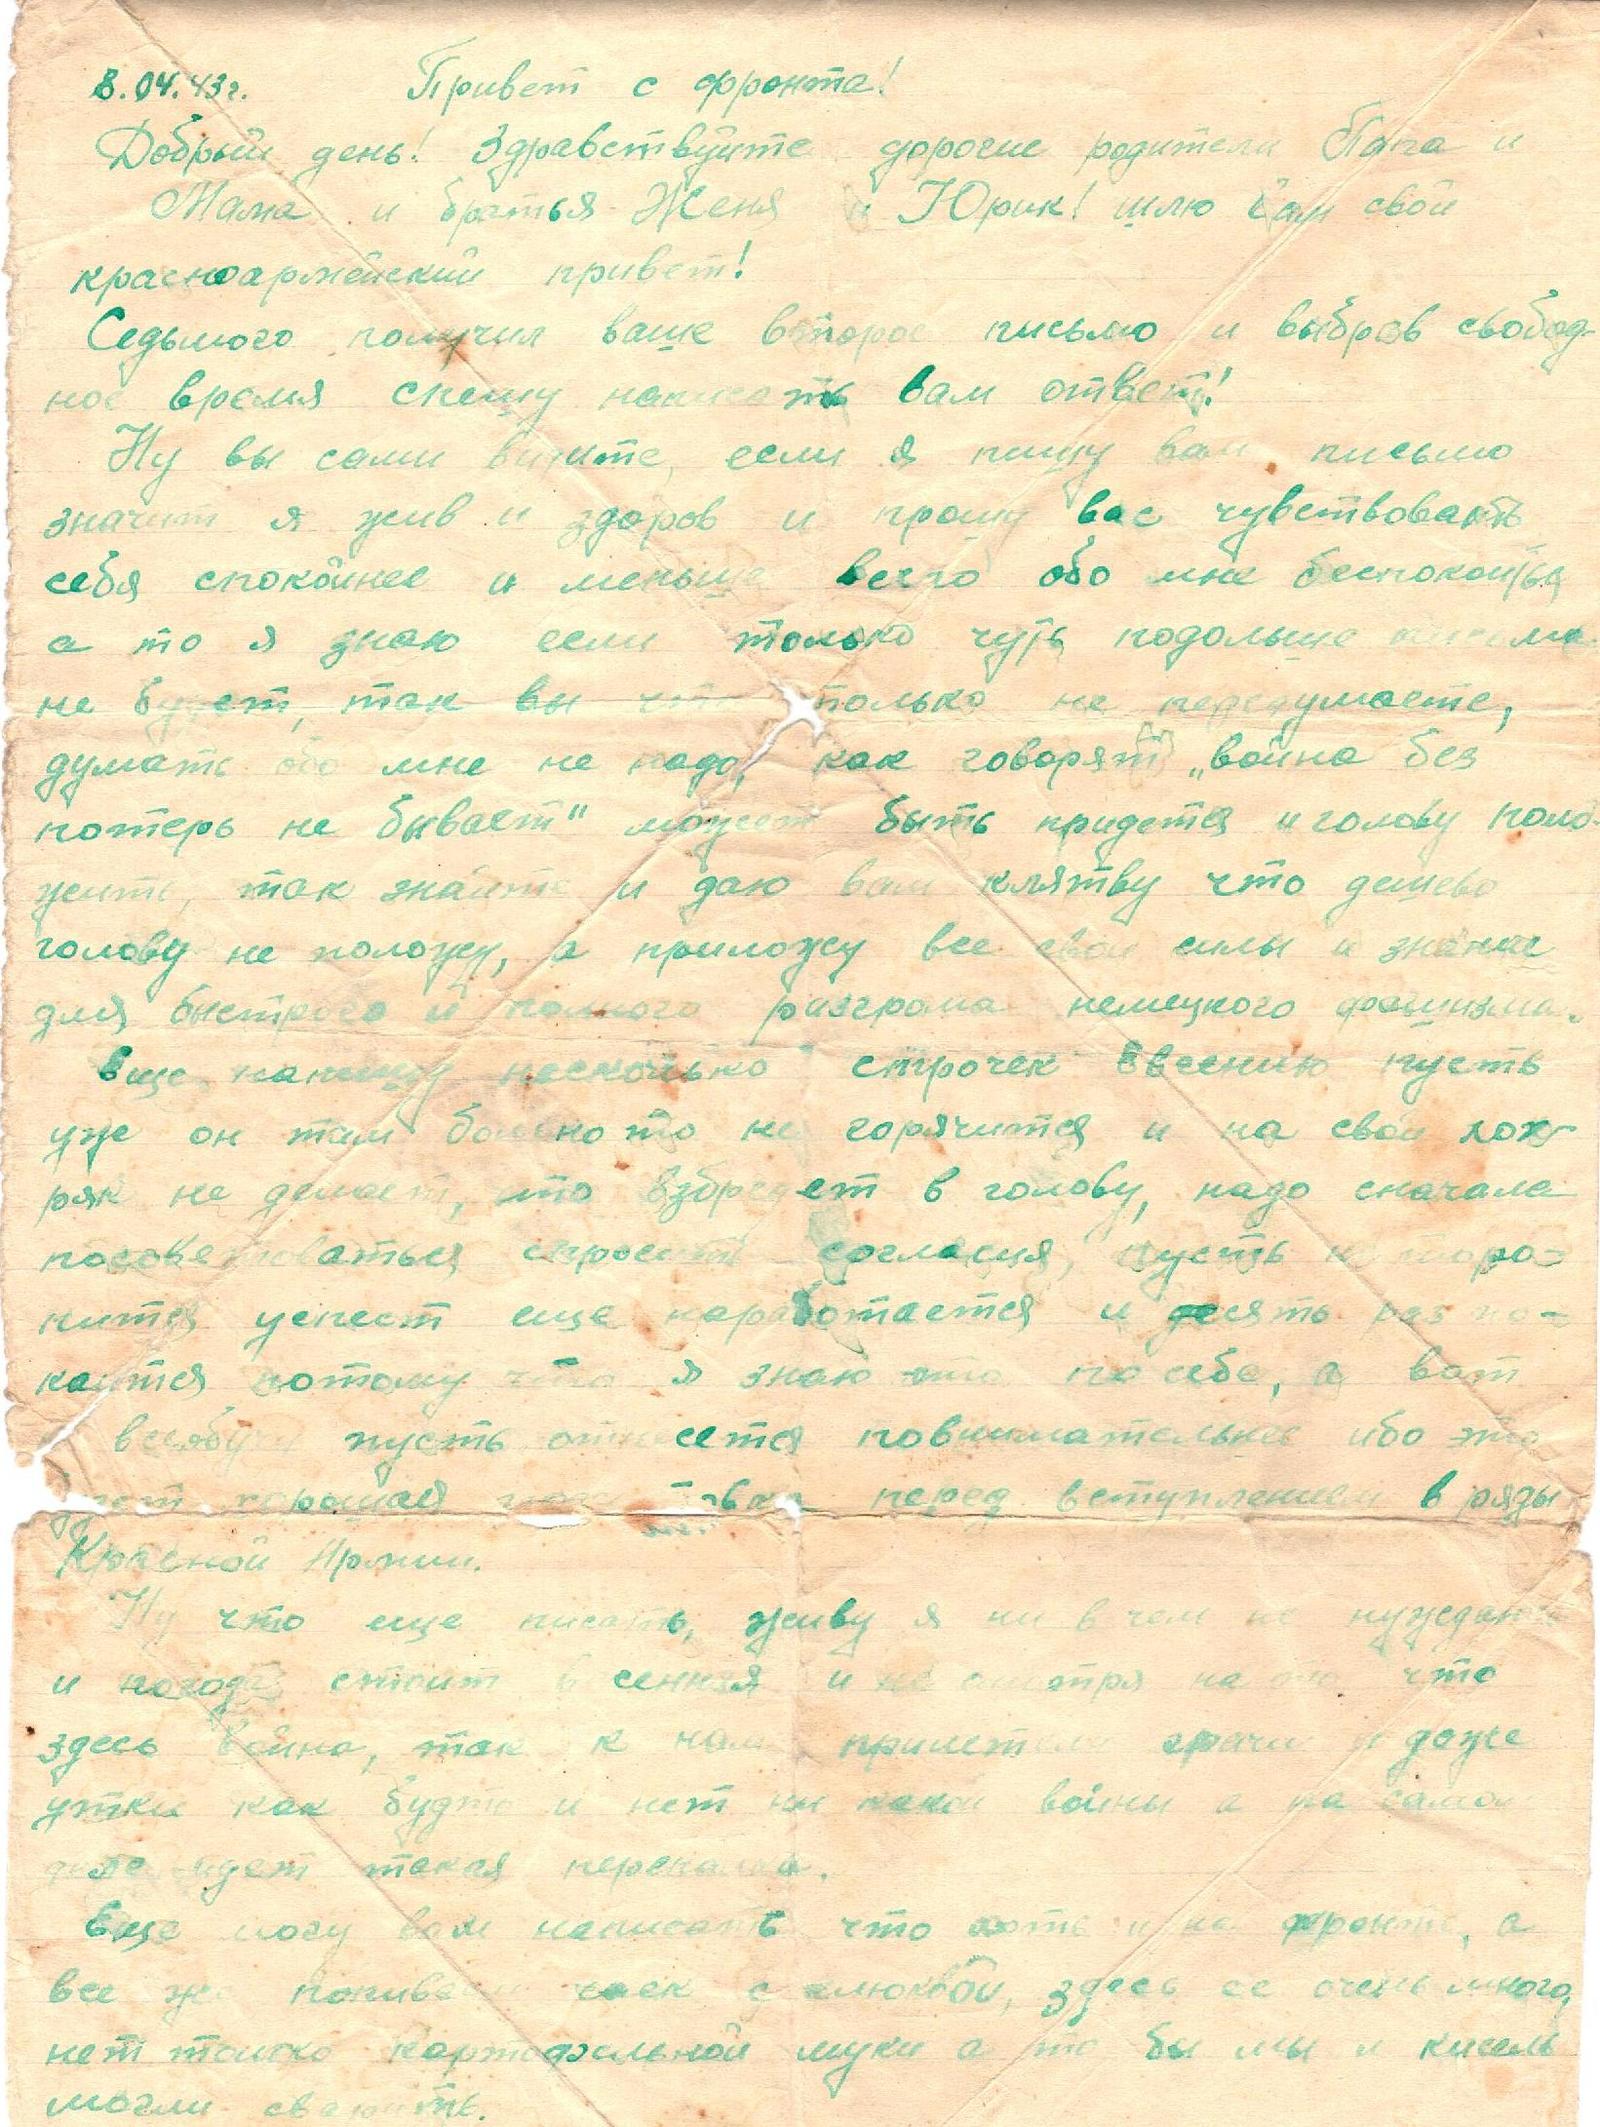 8.04.43г. Привет с фронта!
Добрый день! Здравствуйте дорогие родители Папа и
Мама и братья Женя и Юрик! шлю вам свой
красноармейский привет!
Седьмого получил ваше второе письмо и выбрав свобод-
ное время спешу написать вам ответ!
Ну вы сами видите, если я пишу вам письмо
значит я жив и здоров и прошу вас чувствовать
себя спокойнее и меньше всего обо мне беспокоиться
а то я знаю если только чуть подольше письма
не будет, так вы что только не передумаете,
думать обо мне не надо, как говорят „война без
потерь не бывает" может быть придется и голову поло-
жить, так знайте и даю вам клятву что дешево
голову не положу, а приложу все свои силы и знания
для быстрого и полного разгрома немецкого фашизма.
Еще напишу несколько строчек Евгению пусть
уже он там больно то не горячится и на свой
не делает, что взбредет в голову, надо сначала
посоветоваться спросить согласия, пусть не торо-
пится успеет еще наработается и десять раз по-
каится потому что я знаю это по себе, а вот
всеобуч пусть отнесется повнимательнее ибо это
хорошая перед вступлением в ряды
Красной Армии.
Ну что еще писать, живу я ни в чем не нуждаюсь
и погода стоит весенняя и не смотря на это что
здесь война, так к нам прилетели грачи и даже
утки как будто и нет ни какой войны а на самом
деле идет такая перепалка.
Еще могу вам написать что хоть и на фронте, а
все же попиваем чаек с клюквой, здесь ее очень много,
нет только картофельной муки а то бы мы и кисель
могли сварить.